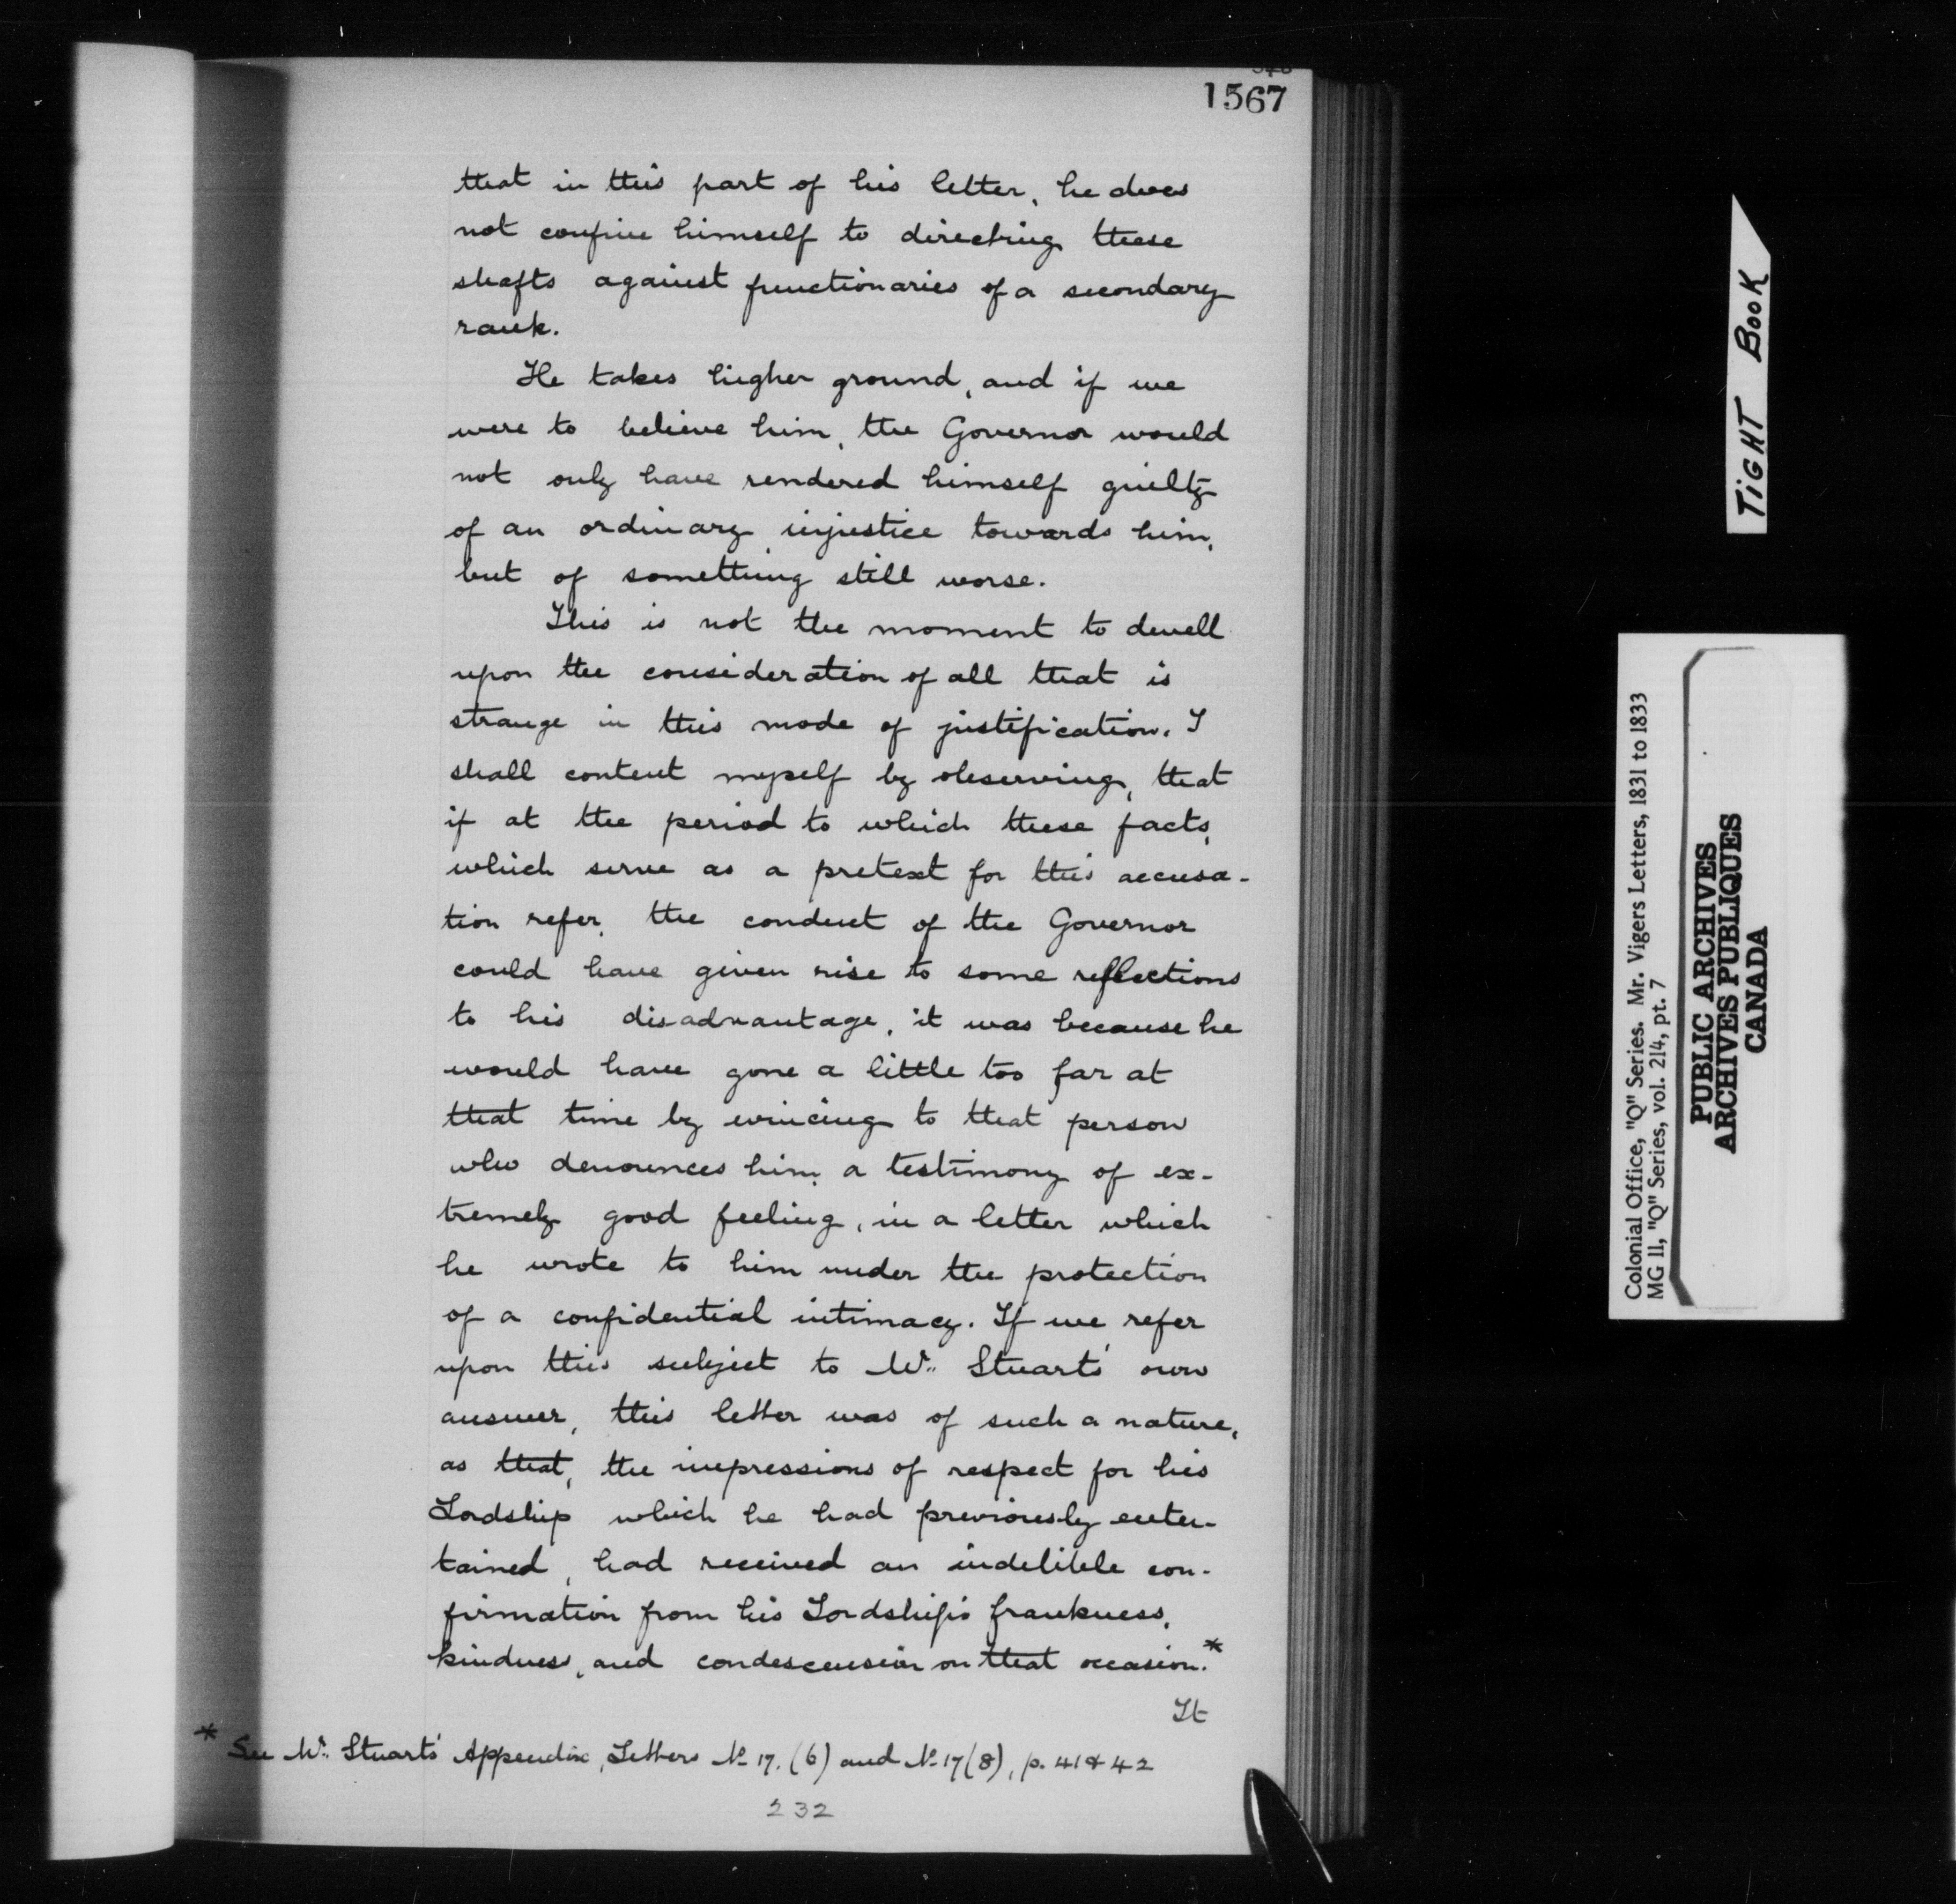 1567
that in this part of his letter, he does
not confine himself to directing these
shafts against functionaries of a secondary
rank.
He takes higher ground, and if we
were to believe him, the Governor would
not only have rendered himself guilty
of an ordinary injustice towards him,
but of something still worse.
This is not the moment to dwell
upon the consideration of all that is
strange in this mode of justification. I
shall content myself by observing, that
if at the period to which these facts,
which serve as a pretext for this accusa-
tion refer, the conduct of the Governor
could have given rise to some reflections
to his disadvantage, it was because he
would have gone a little too far at
that time by evincing to that person
who denounces him, a testimony of ex-
tremely good feeling, in a letter which
he wrote to him under the protection
of a confidential intimacy. If we refer
upon this subject to Mr. Stuart's own
answer, this letter was of such a nature,
as that, the impressions of respect for his
Lordship which he had previously enter-
tained, had received an indelible con-
firmation from his Lordship's frankness,
kindness, and condescension on that occasion.*
It
* See Mr. Stuart's Appendix, Letters No 17. (6) and No 17 (8), p. 41 & 42
232
TIGHT BOOK
Colonial Office, "Q" Series. Mr. Vigers Letters, 1831 to 1833
MG 11, "Q" Series, vol. 214, pt. 7
PUBLIC ARCHIVES
ARCHIVES PUBLIQUES
CANADA